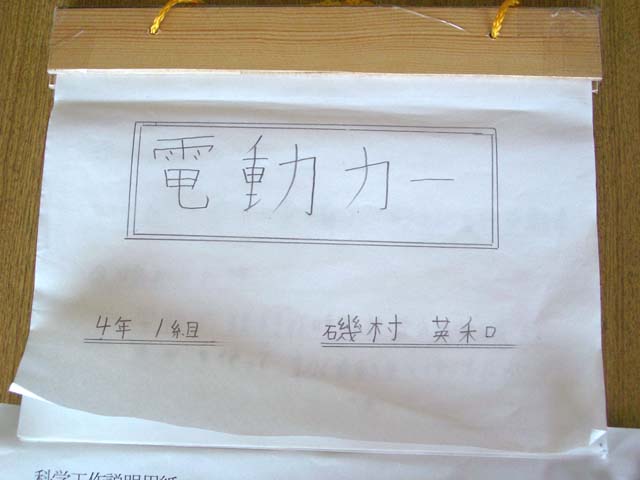 電動カー
4年 1組 磯村 英和
科学工作説明用紙